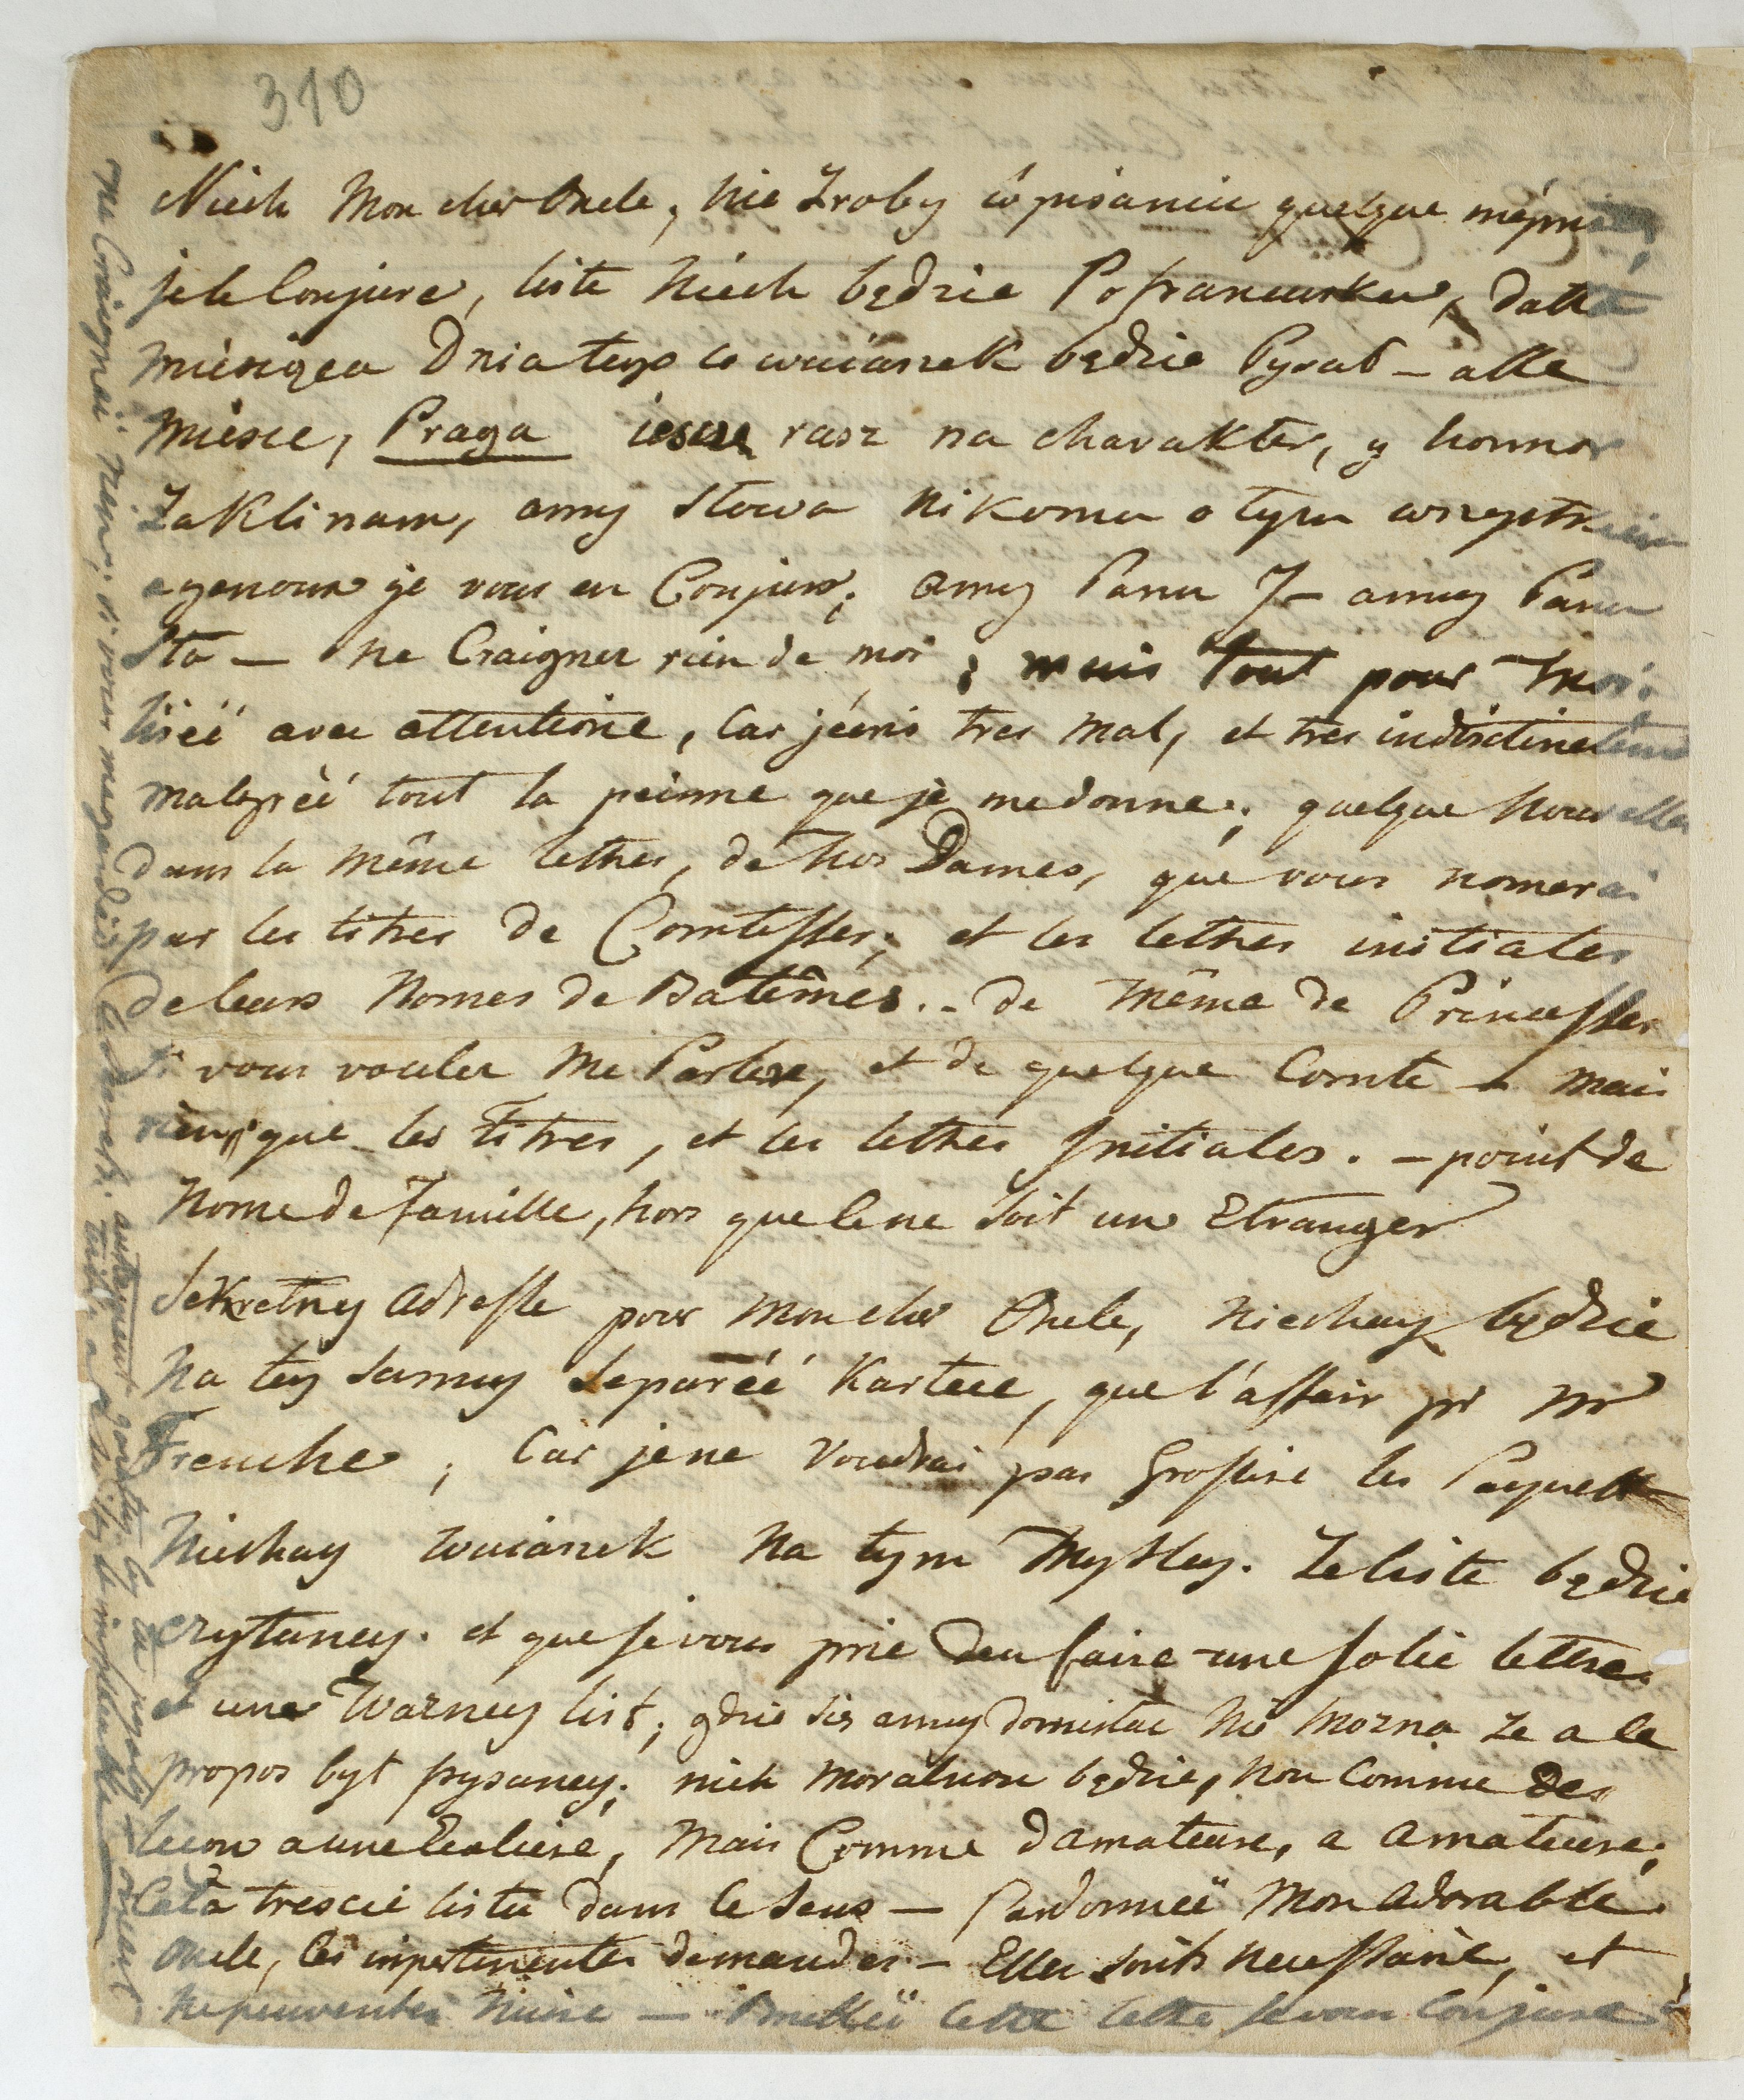 310
Niech Mon cher Oncle, nie Zroby w pisaniu quelque mépri
je le Conjure, liste Niech będzie Pofrancusku, datta
Miesięca Dnia tego co wuiaszek będzie Pysał — alle
Miesce, Praga iescze rasz na charakter, y honnor
Zaklinam, any Słowa Nikomu o tym wszystkim
a genoux je vous en Conjure; any Panu J— any Panu
Sta — Ne Craigner rien de moi; mais tout pour Moi.
liséé avec attentione, Car jécris tres Mal, et tres indistinctement
Malgréé tout la peinne que je me donne; quelque Nouvelles
dans la Même lettres, de Nos Dames, que vous nomerai
par les titres de Comtesses; et les lettres initiales
de leurs Nomes de Batêmes.. de Même de Princesses
Si vous voulez Me Parlere, et de quelque Comte — Mais
rien que les Titres, et les lettres Initiales. — point de
Nome de famille, hors que ce ne Soit un Etranger
Sekretny Adresse pour Mon cher Oncle, Niechay będzie
Na tey Samey Separéé Kartece, que l'affair pr Mr
Frenche; Car je ne Voudrai pas Grossire les Paquett—
Niechay wuiaszek Na tym Mysley. Ze liste będzie
czytaney. et que je vous prie d'en faire une Jolie lettre.
et une Wazney list; gdzie się any domislac Nie Mozna ze a ce
propos był pysaney; niech będzie, Non Comme des
lecon a une Ecoliere, Mais Comme d'amateure, a amateure;
Cała trescie listu dans ce Sens — Pardonnéé Mon Adorable
Oncle, les impertinentes demandes — Elles Sonts Necessaire, et
Ne peuventes Nuire — Brulléé cette lettre je vous Conjure
Ne Craignéé rien; si vous me gardéz le Secret. autrement